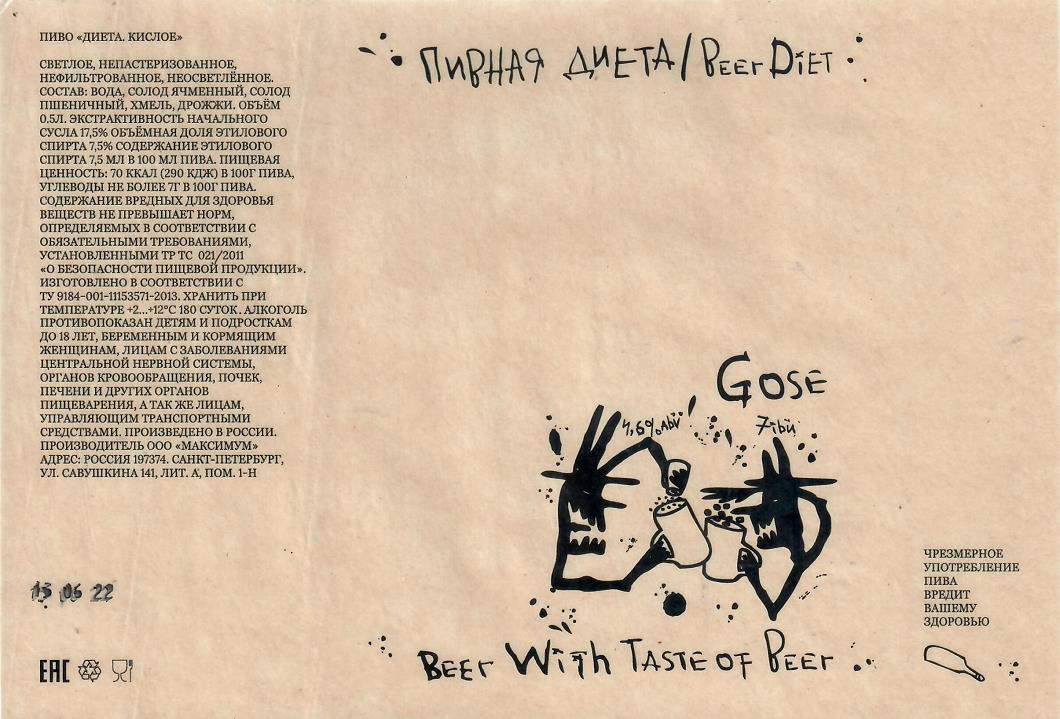 ПИВО «ДИЕТА. КИСЛОЕ»
СВЕТЛОЕ, НЕПАСТЕРИЗОВАННОЕ,
НЕФИЛЬТРОВАННОЕ, НЕОСВЕТЛЁННОЕ.
СОСТАВ: ВОДА, СОЛОД ЯЧМЕННЫЙ, СОЛОД
ПШЕНИЧНЫЙ, ХМЕЛЬ, ДРОЖЖИ. ОБЪЁМ
0.5Л. ЭКСТРАКТИВНОСТЬ НАЧАЛЬНОГО
СУСЛА 17,5% ОБЪЁМНАЯ ДОЛЯ ЭТИЛОВОГО
СПИРТА 7,5% СОДЕРЖАНИЕ ЭТИЛОВОГО
СПИРТА 7,5 МЛ В 100 МЛ ПИВА. ПИЩЕВАЯ
ЦЕННОСТЬ: 70 ККАЛ (290 КДЖ) В 100Г ПИВА,
УГЛЕВОДЫ НЕ БОЛЕЕ 7Г В 100Г ПИВА.
СОДЕРЖАНИЕ ВРЕДНЫХ ДЛЯ ЗДОРОВЬЯ
ВЕЩЕСТВ НЕ ПРЕВЫШАЕТ НОРМ,
ОПРЕДЕЛЯЕМЫХ В СООТВЕТСТВИИ С
ОБЯЗАТЕЛЬНЫМИ ТРЕБОВАНИЯМИ,
УСТАНОВЛЕННЫМИ ТР ТС 021/2011
«О БЕЗОПАСНОСТИ ПИЩЕВОЙ ПРОДУКЦИИ».
ИЗГОТОВЛЕНО В СООТВЕТСТВИИ С
ТУ 9184-001-11153571-2013. ХРАНИТЬ ПРИ
ТЕМПЕРАТУРЕ +2...+12°С 180 СУТОК. АЛКОГОЛЬ
ПРОТИВОПОКАЗАН ДЕТЯМ И ПОДРОСТКАМ
ДО 18 ЛЕТ, БЕРЕМЕННЫМ И КОРМЯЩИМ
ЖЕНЩИНАМ, ЛИЦАМ С ЗАБОЛЕВАНИЯМИ
ЦЕНТРАЛЬНОЙ НЕРВНОЙ СИСТЕМЫ,
ОРГАНОВ КРОВООБРАЩЕНИЯ, ПОЧЕК,
ПЕЧЕНИ И ДРУГИХ ОРГАНОВ
ПИЩЕВАРЕНИЯ, А ТАК ЖЕ ЛИЦАМ,
УПРАВЛЯЮЩИМ ТРАНСПОРТНЫМИ
СРЕДСТВАМИ. ПРОИЗВЕДЕНО В РОССИИ.
ПРОИЗВОДИТЕЛЬ ООО «МАКСИМУМ»
АДРЕС: РОССИЯ 197374. САНКТ-ПЕТЕРБУРГ,
УЛ. САВУШКИНА 141, ЛИТ. А, ПОМ. 1-Н
15 06 22
EAC
ПИВНАЯ ДИЕТА/BEER DIET
GOSE
4,6% ABV
7 IBU
BEER WITH TASTE OF BEER
ЧРЕЗМЕРНОЕ
УПОТРЕБЛЕНИЕ
ПИВА
ВРЕДИТ
ВАШЕМУ
ЗДОРОВЬЮ